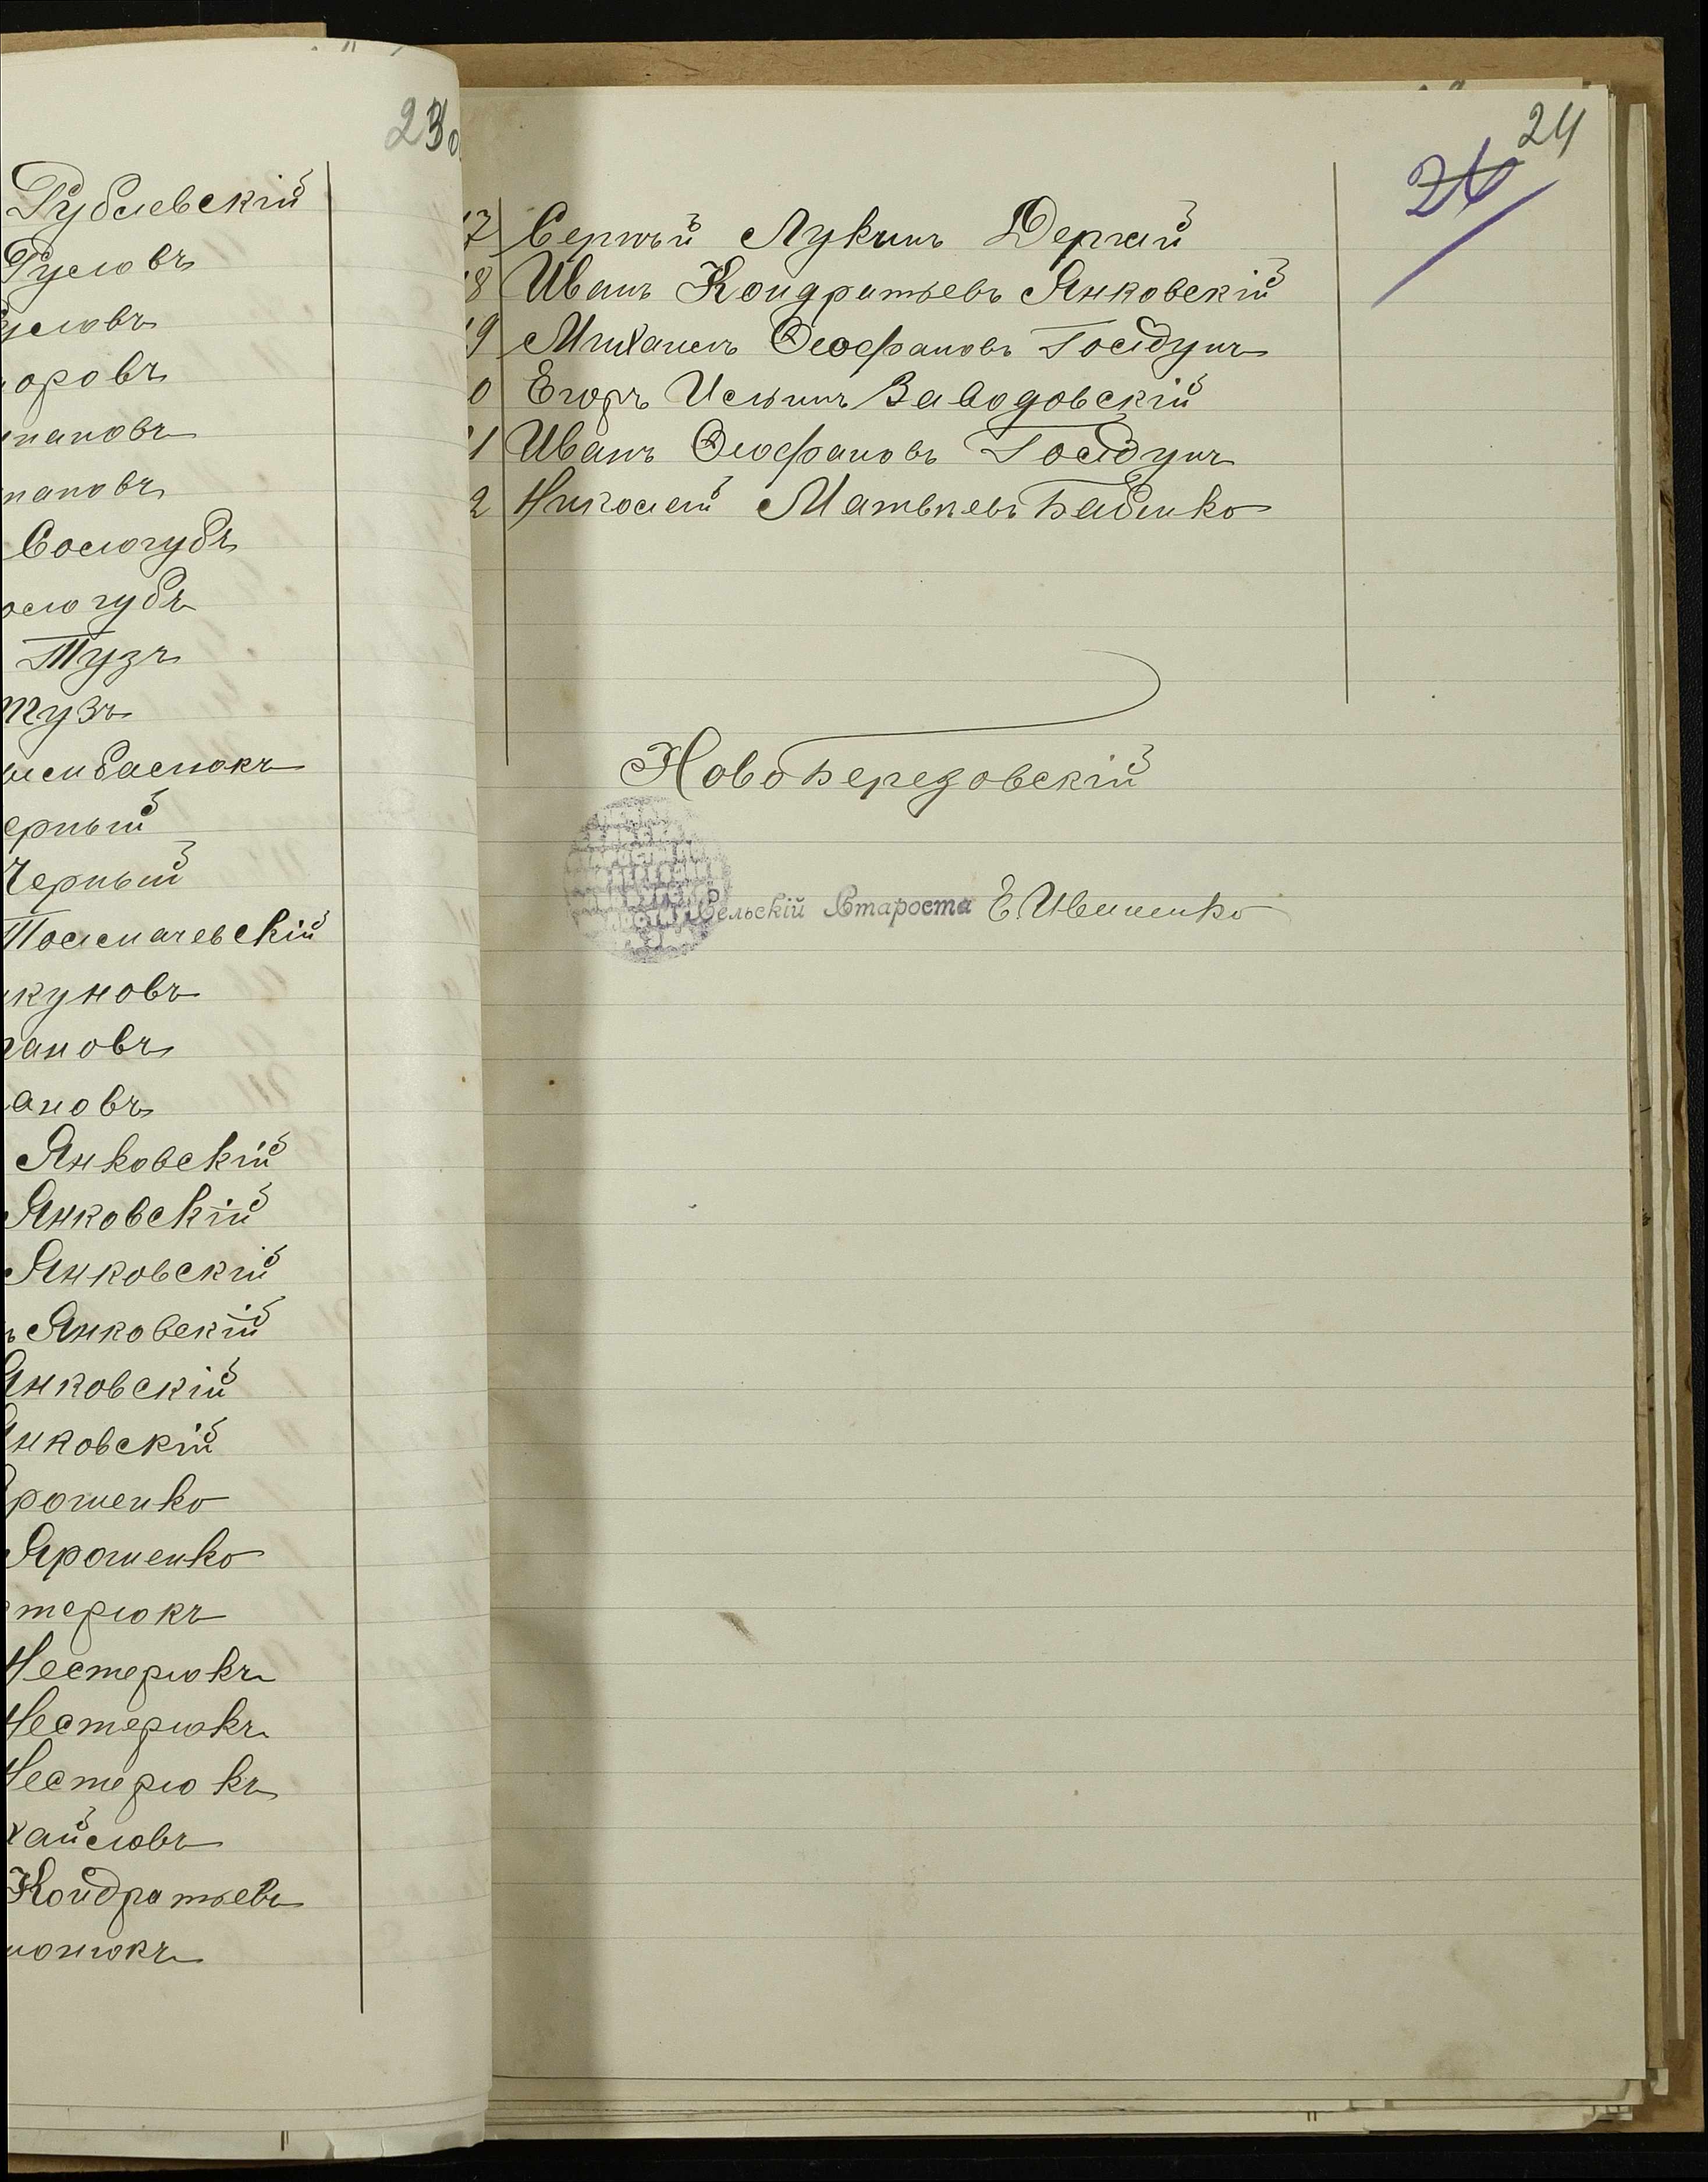 23
Рублевскій
Русловъ
словъ
оровъ
пановъ
пановъ
Сологубъ
ологубъ
Тузъ
Тузъ
ерный
Черный
Толмачевскій
куновъ
гановъ
ановъ
Янковскій
Янковскій
Янковскій
ъ Янковскій
Янковскій
нковскій
рошенко
Ярошенко
терюкъ
Нестерюкъ
Нестерюкъ
Нестерюкъ
хайловъ
Кондратьевъ
нюкъ
24
26
7 Сергѣй Лукинъ Дергай
8 Иванъ Кондратьевъ Янковскій
9 Михаилъ Ѳеофановъ Голдунъ
0 Егоръ Ильинъ Заводовскій
1 Иванъ Ѳеофановъ Голдунъ
2 Николай Матвѣевъ Бабенко
Новоберезовскій
Сельскій Староста Е. Ивненко